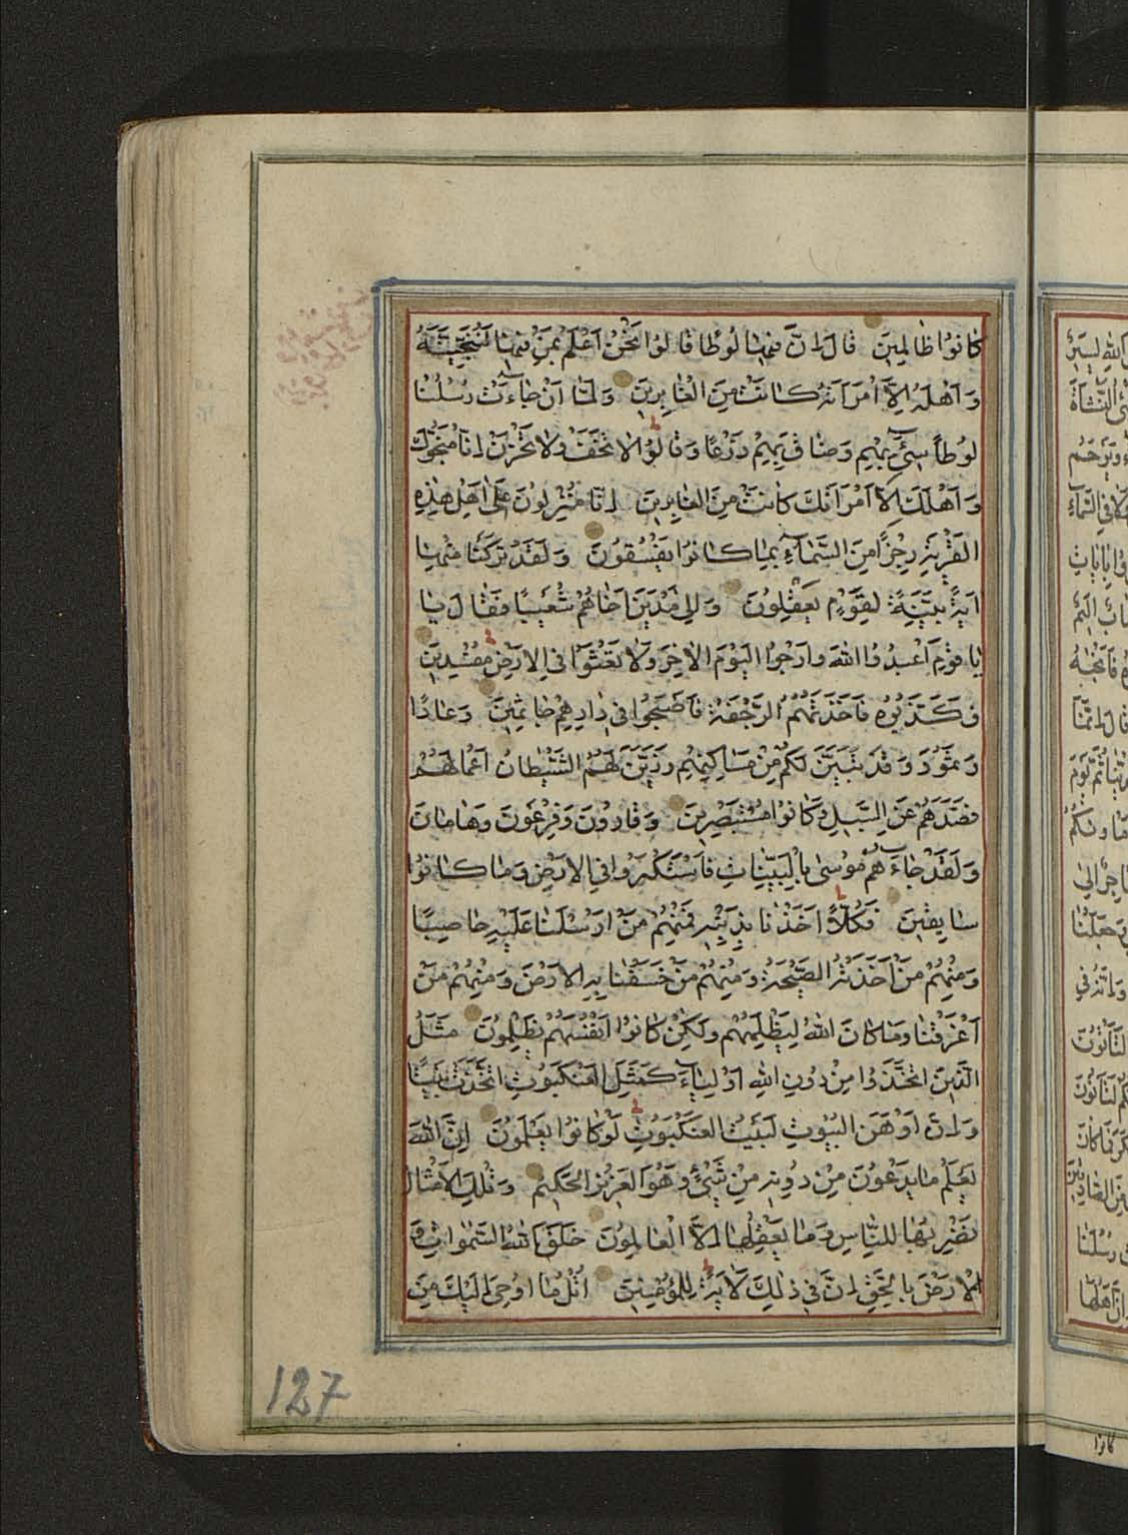 كٰانُوا ظٰالِمِينَ قٰالَ اِنَّ فِيهٰا لُوطًا قٰالُوا نَحْنُ اَعْلَمُ بِمَنْ فِيهٰا لَنُنَجِّيَنَّهُ
وَ اَهْلَهُ اِلَّا امْرَاَتَهُ كٰانَتْ مِنَ الْغٰابِرِينَ وَ لَمّٰا اَنْ جٰاءَتْ رُسُلُنٰا
لُوطًا سِيٓءَ بِهِمْ وَ ضٰاقَ بِهِمْ ذَرْعًا وَ قٰالُوا لٰا تَخَفْ وَ لٰا تَحْزَنْ اِنّٰا مُنَجُّوكَ
وَ اَهْلَكَ اِلَّا امْرَاَتَكَ كٰانَتْ مِنَ الْغٰابِرِينَ اِنّٰا مُنْزِلُونَ عَلىٰ اَهْلِ هٰذِهِ
الْقَرْيَةِ رِجْزًا مِنَ السَّمٰاءِ بِمٰا كٰانُوا يَفْسُقُونَ وَ لَقَدْ تَرَكْنٰا مِنْهٰا
اٰيَةً بَيِّنَةً لِقَوْمٍ يَعْقِلُونَ وَ اِلىٰ مَدْيَنَ اَخٰاهُمْ شُعَيْبًا فَقٰالَ يٰا
يٰا قَوْمِ اعْبُدُوا اللّٰهَ وَ ارْجُوا الْيَوْمَ الْاٰخِرَ وَ لٰا تَعْثَوْا فِي الْاَرْضِ مُفْسِدِينَ
فَكَذَّبُوهُ فَاَخَذَتْهُمُ الرَّجْفَةُ فَاَصْبَحُوا فِي دٰارِهِمْ جٰاثِمِينَ وَ عٰادًا
وَ ثَمُودَ وَ قَدْ تَبَيَّنَ لَكُمْ مِنْ مَسٰاكِنِهِمْ وَ زَيَّنَ لَهُمُ الشَّيْطٰانُ اَعْمٰالَهُمْ
فَصَدَّهُمْ عَنِ السَّبِيلِ وَ كٰانُوا مُسْتَبْصِرِينَ وَ قٰارُونَ وَ فِرْعَوْنَ وَ هٰامٰانَ
وَ لَقَدْ جٰاءَهُمْ مُوسىٰ بِالْبَيِّنٰاتِ فَاسْتَكْبَرُوا فِي الْاَرْضِ وَ مٰا كٰانُوا
سٰابِقِينَ فَكُلًّا اَخَذْنٰا بِذَنْبِهِ فَمِنْهُمْ مَنْ اَرْسَلْنٰا عَلَيْهِ حٰاصِبًا
وَ مِنْهُمْ مَنْ اَخَذَتْهُ الصَّيْحَةُ وَ مِنْهُمْ مَنْ خَسَفْنٰا بِهِ الْاَرْضَ وَ مِنْهُمْ مَنْ
اَغْرَقْنٰا وَ مٰا كٰانَ اللّٰهُ لِيَظْلِمَهُمْ وَ لٰكِنْ كٰانُوا اَنْفُسَهُمْ يَظْلِمُونَ مَثَلُ
الَّذِينَ اتَّخَذُوا مِنْ دُونِ اللّٰهِ اَوْلِيٰاءَ كَمَثَلِ الْعَنْكَبُوتِ اتَّخَذَتْ بَيْتًا
وَ اِنَّ اَوْهَنَ الْبُيُوتِ لَبَيْتُ الْعَنْكَبُوتِ لَوْ كٰانُوا يَعْلَمُونَ اِنَّ اللّٰهَ
يَعْلَمُ مٰا يَدْعُونَ مِنْ دُونِهِ مِنْ شَيْءٍ وَ هُوَ الْعَزِيزُ الْحَكِيمُ وَ تِلْكَ الْاَمْثٰالُ
نَضْرِبُهٰا لِلنّٰاسِ وَ مٰا يَعْقِلُهٰا اِلَّا الْعٰالِمُونَ خَلَقَ اللّٰهُ السَّمٰوٰاتِ وَ
الْاَرْضَ بِالْحَقِّ اِنَّ فِي ذٰلِكَ لَاٰيَةً لِلْمُؤْمِنِينَ اُتْلُ مٰا اُوحِيَ اِلَيْكَ مِنَ
127